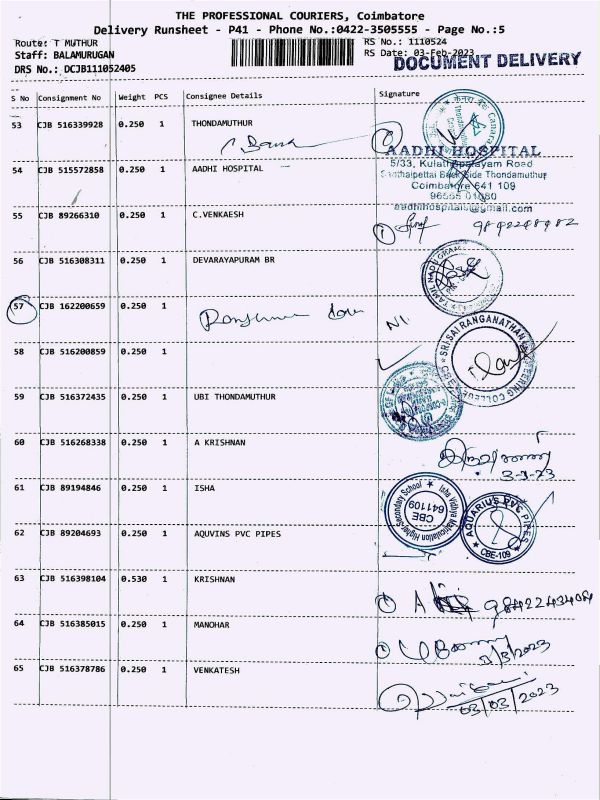 THE PROFESSIONAL COURIERS, Coimbatore
Delivery Runsheet - P41 - Phone No.:0422-3505555 - Page No.:5
Route: T MUTHUR
Staff: BALAMURUGAN
DRS No.: DCJB111052405
RS No.: 1110524
RS Date: 03-Feb-2023
DOCUMENT DELIVERY
S No Consignment No Weight PCS Consignee Details Signature
53 CJB 516339928 0.250 1 THONDAMUTHUR
AADHI HOSPITAL
54 CJB 515572858 0.250 1 AADHI HOSPITAL
5/33, Kulathupalayam Road
Santhaipettai Back Side Thondamuthur
Coimbatore 641 109
aadhihospitals@gmail.com
55 CJB 89266310 0.250 1 C.VENKAESH
56 CJB 516308311 0.250 1 DEVARAYAPURAM BR
TAMIL NADU GRAMA
57 CJB 162200659 0.250 1
SRI SAI RANGANATHAN ENGINEERING COLLEGE
58 CJB 516200859 0.250 1
59 CJB 516372435 0.250 1 UBI THONDAMUTHUR
60 CJB 516268338 0.250 1 A KRISHNAN
61 CJB 89194846 0.250 1 ISHA
Isha Vidhya Matriculation Higher Secondary School
CBE
641109
AQUARIUS PVC PIPES
CBE-109
62 CJB 89204693 0.250 1 AQUVINS PVC PIPES
63 CJB 516398104 0.530 1 KRISHNAN
64 CJB 516385015 0.250 1 MANOHAR
3/3/2023
65 CJB 516378786 0.250 1 VENKATESH
03/03/2023